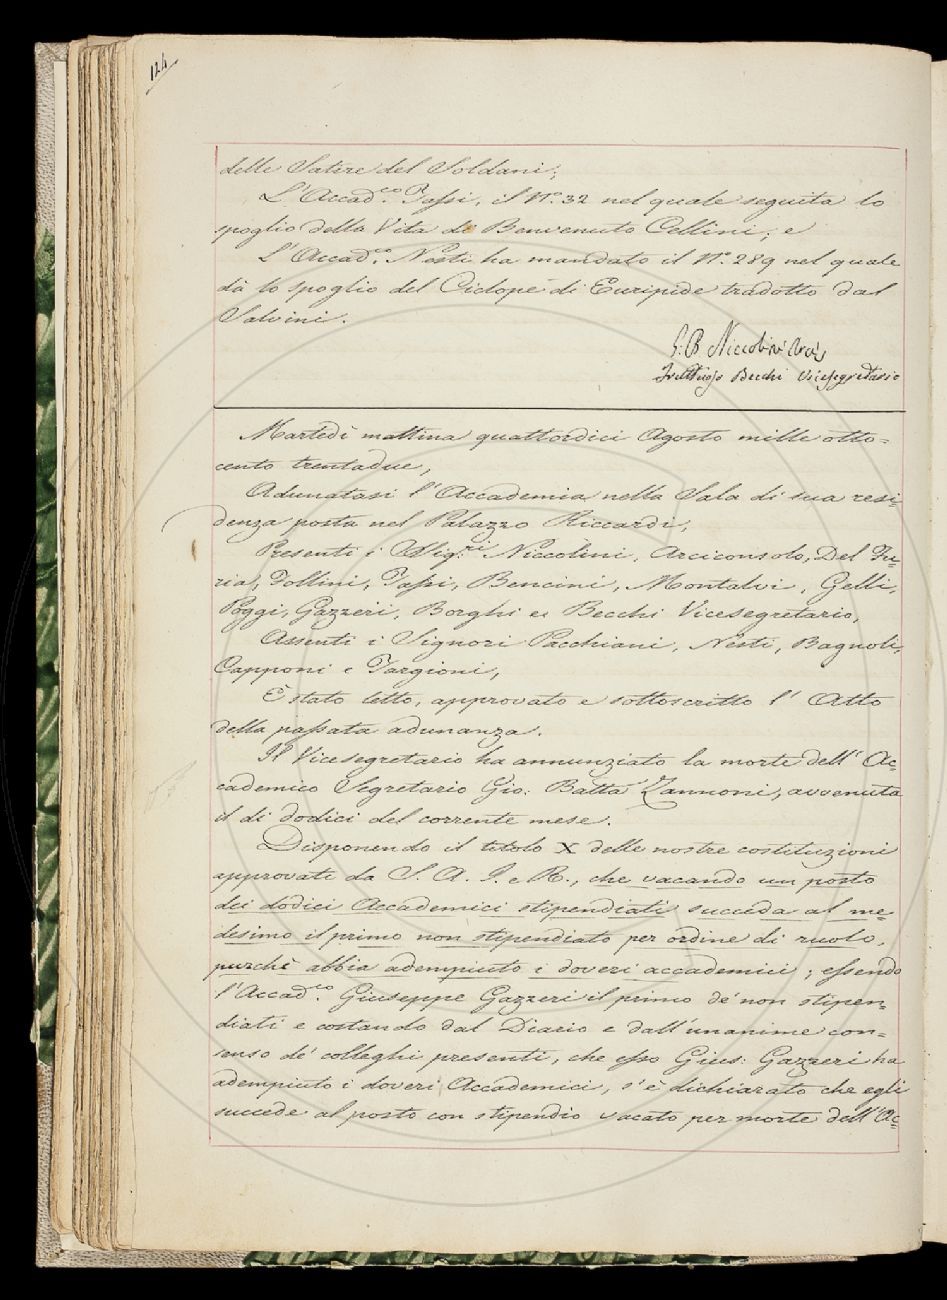 124
delle Satire del Soldani;
L'Accad.co Tassi, il N.o 32 nel quale seguita lo
spoglio della Vita di Benvenuto Cellini; e
L'Accad.co Nesti ha mandato il N.o 289 nel quale
dà lo spoglio del Ciclope di Euripide tradotto dal
Salvini.
G: B Niccolini
Fruttuoso Becchi Vicesegretario
Martedì mattina quattordici Agosto mille otto=
cento trentadue,
Adunatasi l'Accademia nella Sala di sua resi=
denza posta nel Palazzo Riccardi,
Presenti i Sig.ri Niccolini, Arciconsolo, Del Fu=
ria, Follini, Tassi, Bencini, Montalvi, Gelli,
Poggi, Gazzeri, Borghi e Becchi Vicesegretario,
Assenti i Signori Pacchiani, Nesti, Bagnoli,
Capponi e Targioni,
È stato letto, approvato e sottoscritto l'Atto
della passata adunanza.
Il Vicesegretario ha annunziato la morte dell'Ac=
cademico Segretario Gio: Batta Zannoni, avvenuta
il di dodici del corrente mese.
Disponendo il titolo X delle nostre costituzioni
approvati da S. A. I. e R., che vacando un posto
dei dodici Accademici stipendiati succeda al me=
desimo il primo non stipendiato per ordine di ruolo,
purchè abbia adempiuto i doveri accademici; essendo
l'Accad.co Giuseppe Gazzeri il primo de' non stipen=
diati e costando dal Diario e dall'unanime con=
senso de' colleghi presenti, che esso Gius: Gazzeri ha
adempiuto i doveri Accademici, s'è dichiarato che egli
succede al posto con stipendio vacato per morte dell'Ac=